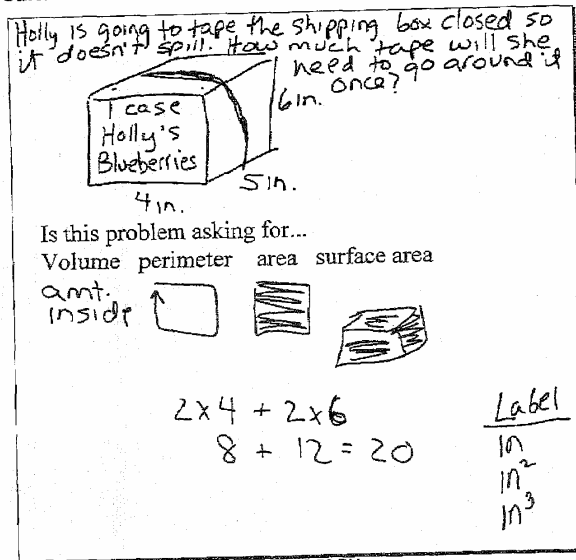 Holly is going to tape the shipping box closed so
it doesn't spill. How much tape will she
need to go around it
once?
1 case
Holly's
Blueberries
6in.
5in.
4in.
Is this problem asking for...
Volume perimeter area surface area
amt.
inside
2x4 + 2x6
8 + 12 = 20
Label
in
in²
in³